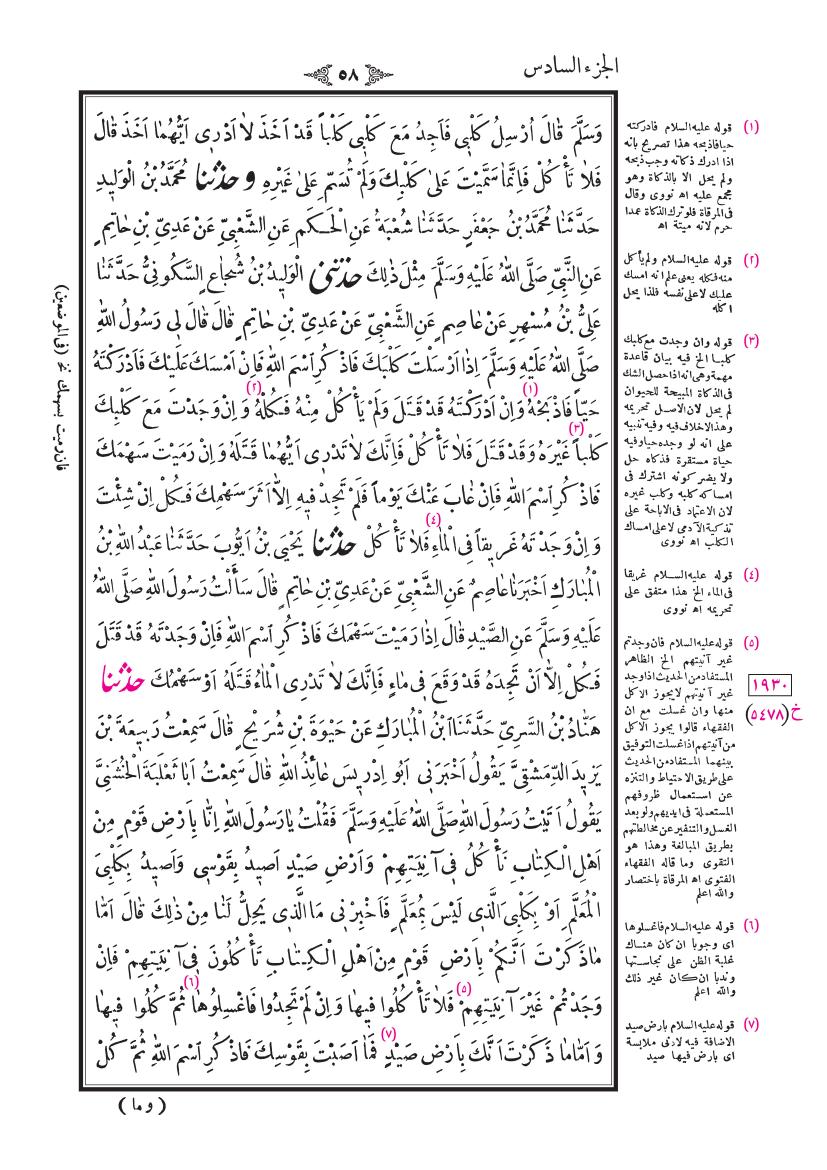 الجزء السادس
٥٨
وَسَلَّمَ قَالَ اُرْسِلُ كَلْبِى فَاَجِدُ مَعَ كَلْبِى كَلْباً قَدْ اَخَذَ لَا اَدْرِى اَيُّهُمَا اَخَذَ قَالَ
فَلَا تَأْكُلْ فَاِنَّمَا سَمَّيْتَ عَلىٰ كَلْبِكَ وَلَمْ تُسَمِّ عَلىٰ غَيْرِهِ وحَدَّثَنَا مُحَمَّدُ بْنُ الْوَلِيدِ
حَدَّثَنَا مُحَمَّدُ بْنُ جَعْفَرٍ حَدَّثَنَا شُعْبَةُ عَنِ الْحَكَمِ عَنِ الشَّعْبِىِّ عَنْ عَدِىِّ بْنِ حَاتِمٍ
عَنِ النَّبِىِّ صَلَّى اللهُ عَلَيْهِ وَسَلَّمَ مِثْلَ ذٰلِكَ حَدَّثَنِى الْوَلِيدُ بْنُ شُجَاعٍ السَّكُونِىُّ حَدَّثَنَا
عَلِىُّ بْنُ مُسْهِرٍ عَنْ عَاصِمٍ عَنِ الشَّعْبِىِّ عَنْ عَدِىِّ بْنِ حَاتِمٍ قَالَ قَالَ لِى رَسُولُ اللهِ
صَلَّى اللهُ عَلَيْهِ وَسَلَّمَ اِذَا اَرْسَلْتَ كَلْبَكَ فَاذْكُرِ اسْمَ اللهِ فَاِنْ اَمْسَكَ عَلَيْكَ فَاَدْرَكْتَهُ
حَيّاً فَاذْبَحْهُ (١) وَاِنْ اَدْرَكْتَهُ قَدْ قَتَلَ وَلَمْ يَأْكُلْ مِنْهُ فَكُلْهُ (٢) وَاِنْ وَجَدْتَ مَعَ كَلْبِكَ
كَلْباً (٣) غَيْرَهُ وَقَدْ قَتَلَ فَلَا تَأْكُلْ فَاِنَّكَ لَا تَدْرِى اَيُّهُمَا قَتَلَهُ وَاِنْ رَمَيْتَ سَهْمَكَ
فَاذْكُرِ اسْمَ اللهِ فَاِنْ غَابَ عَنْكَ يَوْماً فَلَمْ تَجِدْ فِيهِ اِلَّا اَثَرَ سَهْمِكَ فَكُلْ اِنْ شِئْتَ
وَاِنْ وَجَدْتَهُ غَرِيقاً فِى الْمَاءِ (٤) فَلَا تَأْكُلْ حَدَّثَنَا يَحْيَى بْنُ اَيُّوبَ حَدَّثَنَا عَبْدُ اللهِ بْنُ
الْمُبَارَكِ اَخْبَرَنَا عَاصِمٌ عَنِ الشَّعْبِىِّ عَنْ عَدِىِّ بْنِ حَاتِمٍ قَالَ سَأَلْتُ رَسُولَ اللهِ صَلَّى اللهُ
عَلَيْهِ وَسَلَّمَ عَنِ الصَّيْدِ قَالَ اِذَا رَمَيْتَ سَهْمَكَ فَاذْكُرِ اسْمَ اللهِ فَاِنْ وَجَدْتَهُ قَدْ قَتَلَ
فَكُلْ اِلَّا اَنْ تَجِدَهُ قَدْ وَقَعَ فِى مَاءٍ فَاِنَّكَ لَا تَدْرِى الْمَاءُ قَتَلَهُ اَوْ سَهْمُكَ حَدَّثَنَا
هَنَّادُ بْنُ السَّرِىِّ حَدَّثَنَا ابْنُ الْمُبَارَكِ عَنْ حَيْوَةَ بْنِ شُرَيْحٍ قَالَ سَمِعْتُ رَبِيعَةَ بْنَ
يَزِيدَ الدِّمَشْقِىَّ يَقُولُ اَخْبَرَنِى اَبُو اِدْرِيسَ عَائِذُ اللهِ قَالَ سَمِعْتُ اَبَا ثَعْلَبَةَ الْخُشَنِىَّ
يَقُولُ اَتَيْتُ رَسُولَ اللهِ صَلَّى اللهُ عَلَيْهِ وَسَلَّمَ فَقُلْتُ يَا رَسُولَ اللهِ اِنَّا بِاَرْضِ قَوْمٍ مِنْ
اَهْلِ الْكِتَابِ نَأْكُلُ فِى آنِيَتِهِمْ وَاَرْضِ صَيْدٍ اَصِيدُ بِقَوْسِى وَاَصِيدُ بِكَلْبِىَ
الْمُعَلَّمِ اَوْ بِكَلْبِىَ الَّذِى لَيْسَ بِمُعَلَّمٍ فَاَخْبِرْنِى مَا الَّذِى يَحِلُّ لَنَا مِنْ ذٰلِكَ قَالَ اَمَّا
مَا ذَكَرْتَ اَنَّكُمْ بِاَرْضِ قَوْمٍ مِنْ اَهْلِ الْكِتَابِ تَأْكُلُونَ فِى آنِيَتِهِمْ فَاِنْ
وَجَدْتُمْ غَيْرَ آنِيَتِهِمْ (٥) فَلَا تَأْكُلُوا فِيهَا وَاِنْ لَمْ تَجِدُوا فَاغْسِلُوهَا (٦) ثُمَّ كُلُوا فِيهَا
وَاَمَّا مَا ذَكَرْتَ اَنَّكَ بِاَرْضِ صَيْدٍ (٧) فَمَا اَصَبْتَ بِقَوْسِكَ فَاذْكُرِ اسْمَ اللهِ ثُمَّ كُلْ
( وما )
(١) قوله عليه السلام فادركته
حيا فاذبحه هذا تصريح بانه
اذا ادرك ذكاته وجب ذبحه
ولم يحل الا بالذكاة وهو
مجمع عليه اه نووى وقال
فى المرقاة فلو ترك الذكاة عمدا
حرم لانه ميتة اه
(٢) قوله عليه السلام ولم يأكل
منه فكله يعنى علم انه امسك
عليك لا على نفسه فلذا يحل
اكله
(٣) قوله وان وجدت مع كلبك
كلبا الخ فيه بيان قاعدة
مهمة وهى انه اذا حصل الشك
فى الذكاة المبيحة للحيوان
لم يحل لان الاصل تحريمه
وهذا لاخلاف فيه وفيه تنبيه
على انه لو وجده حيا وفيه
حياة مستقرة فذكاه حل
ولا يضر كونه اشترك فى
امساكه كلبه وكلب غيره
لان الاعتماد فى الاباحة على
تذكية الآدمى لا على امساك
الكلب اه نووى
(٤) قوله عليه السلام غريقا
فى الماء الخ هذا متفق على
تحريمه اه نووى
(٥) قوله عليه السلام فان وجدتم
غير آنيتهم الخ الظاهر
المستفاد من الحديث اذا وجد
غير آنيتهم لا يجوز الاكل
منها وان غسلت مع ان
الفقهاء قالوا يجوز الاكل
من آنيتهم اذا غسلت التوفيق
بينهما المستفاد من الحديث
على طريق الاحتياط والتنزه
عن استعمال ظروفهم
المستعملة فى ايديهم ولو بعد
الغسل والتنفير عن مخالطتهم
بطريق المبالغة وهذا هو
التقوى وما قاله الفقهاء
الفتوى اه المرقاة باختصار
والله اعلم
(٦) قوله عليه السلام فاغسلوها
اى وجوبا ان كان هناك
غلبة الظن على نجاستها
وندبا ان كان غير ذلك
والله اعلم
(٧) قوله عليه السلام بارض صيد
الاضافة فيه لادنى ملابسة
اى بارض فيها صيد
١٩٣٠
خ (٥٤٧٨)
فان رميت بسهمك نخ (فى الموضعين)